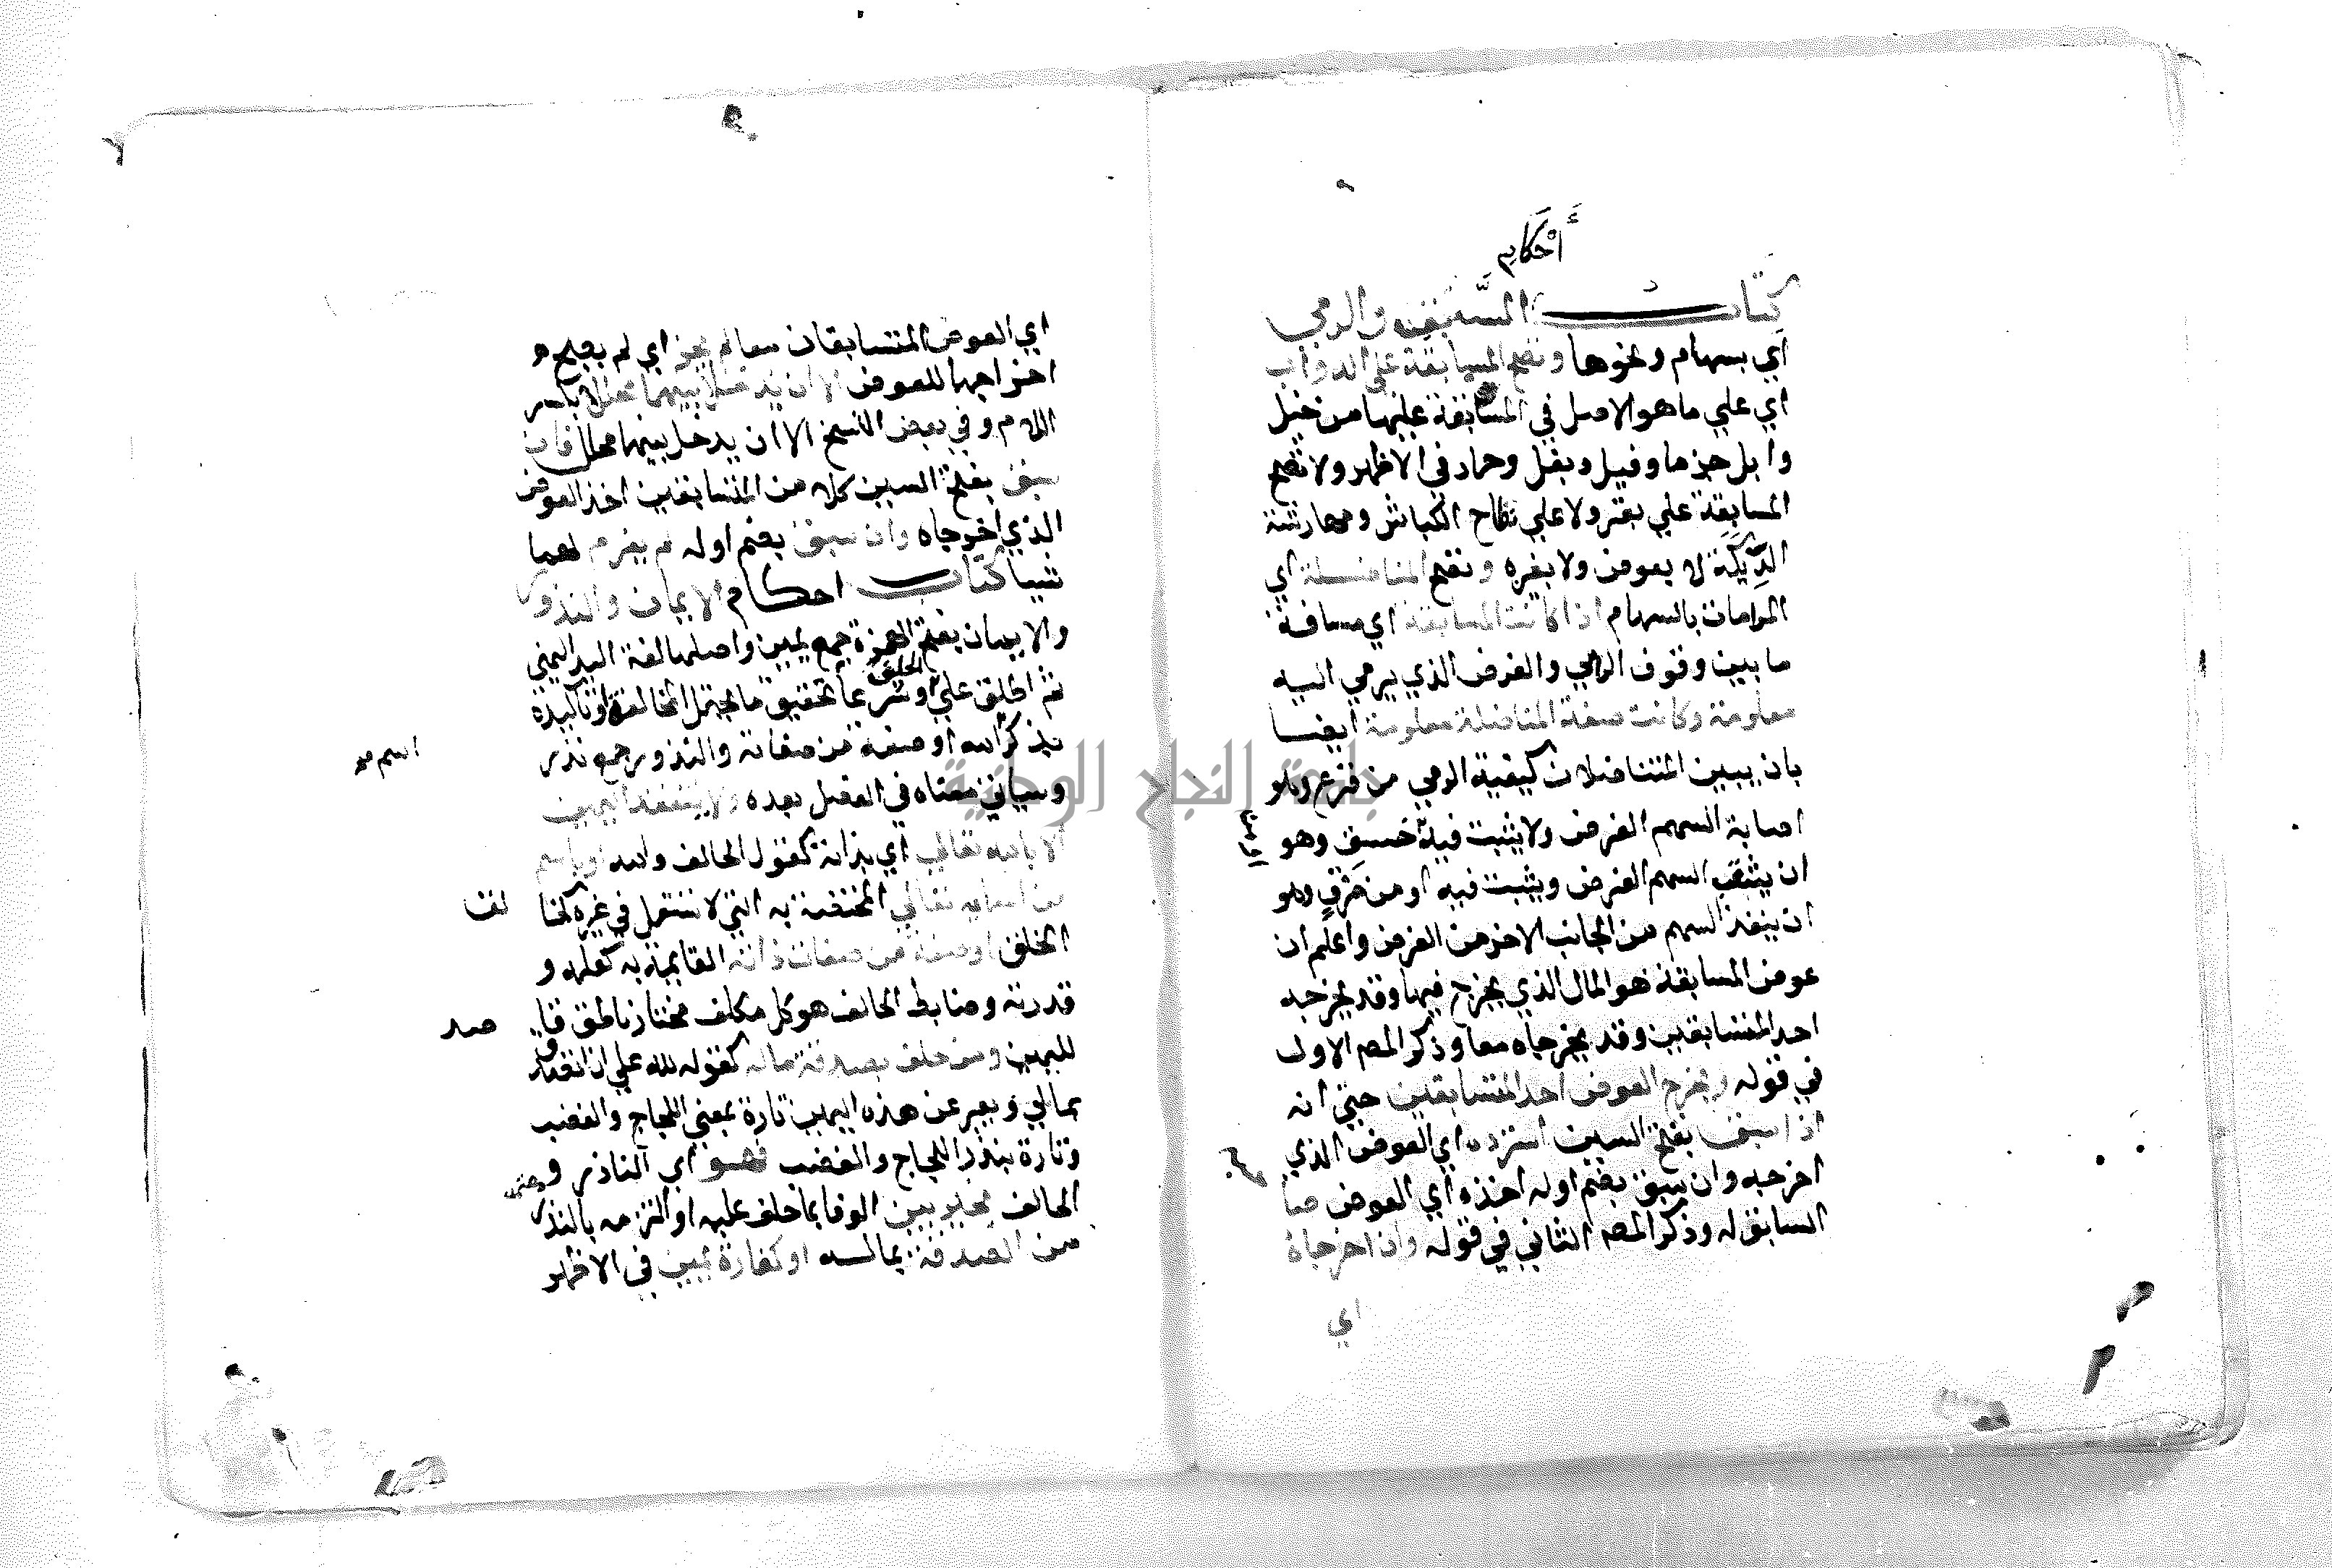 أحكام
كتاب السبق والرمي
أي بسهام ونحوها وتصح المسابقة على الدواب
اي علي ما هو الاصل في المسابقة عليها من خيل
وابل جزما وفيل وبغل وحمار في الاظهر ولا تصح
المسابقة علي بقر ولا علي نطاح الكباش ومهارشة
الديكة لا بعوض ولا بغيره وتصح المناضلة اي
المرامات بالسهام اذا كانت المسابقة اي مسافة
ما بين وقوف الرامي والغرض الذي يرمي اليه
معلومة وكانت صفة المناضلة معلومة ايضا
بان يبين المتناضلان كيفية الرمي من قرع وهو
اصابة السهم الغرض ولا يثبت فيه خسق وهو
ان يثقب السهم الغرض ويثبت فيه او من مرق وهو
ان ينفذ السهم من الجانب الاخر من الغرض واعلم ان
عوض المسابقة هو المال الذي يخرج فيها وقد يخرجه
احد المتسابقين وقد يخرجاه معا وذكر المص الاول
في قوله ويخرج العوض احد المتسابقين حتي انه
اذا سبق بفتح السين استرده اي العوض الذي
اخرجه وان سبق بضم اوله اخذه اي العوض صا
السابق له وذكر المص الثاني في قوله وان اخرجاه
اي
اي العوض المتسابقان معا لم يجز اي لم يصح
اخراجهما للعوض الا ان يدخلا بينهما محللا بكسر
اللام وفي بعض النسخ الا ان يدخل بينهما محلل فان
سبق بفتح السين كلا من المتسابقين اخذ العوض
الذي اخرجاه وان سبق بضم اوله لم يغرم لهما
شيا كتاب احكام الايمان والنذور
والايمان بفتح الهمزة جمع يمين واصلها لغة اليد اليمني
ثم اطلق علي الحلق وشرعا تحقيق ما يحتمل المخالفة او تاكيده
بذكر اسم الله او صفة من صفاته والنذور جمع نذر
وسياتي معناه في الفصل بعده ولا ينعقد اليمين
الا بالله تعالي اي بذاته كقول الحالف والله او باسم
من اسمايه تعالي المختصة به التي لا تستعمل في غيره كخا
لق
الخلق او صفة من صفات ذاته القايمة به كعلمه و
قدرته وضابط الحالف هو كل مكلف مختار ناطق قا
صد
لليمين ومن حلف بصدقة ماله كقوله لله علي ان اتصدق
بمالي ويعبر عن هذه اليمين تارة بمعني اللجاج والغضب
وتارة بنذر اللجاج والغضب فهو اي الناذر و
الحالف مخير بين الوفا بما حلف عليه او التزمه بالنذر
من الصدقة بماله او كفارة يمين في الاظهر
جامعة النجاح الوطنية